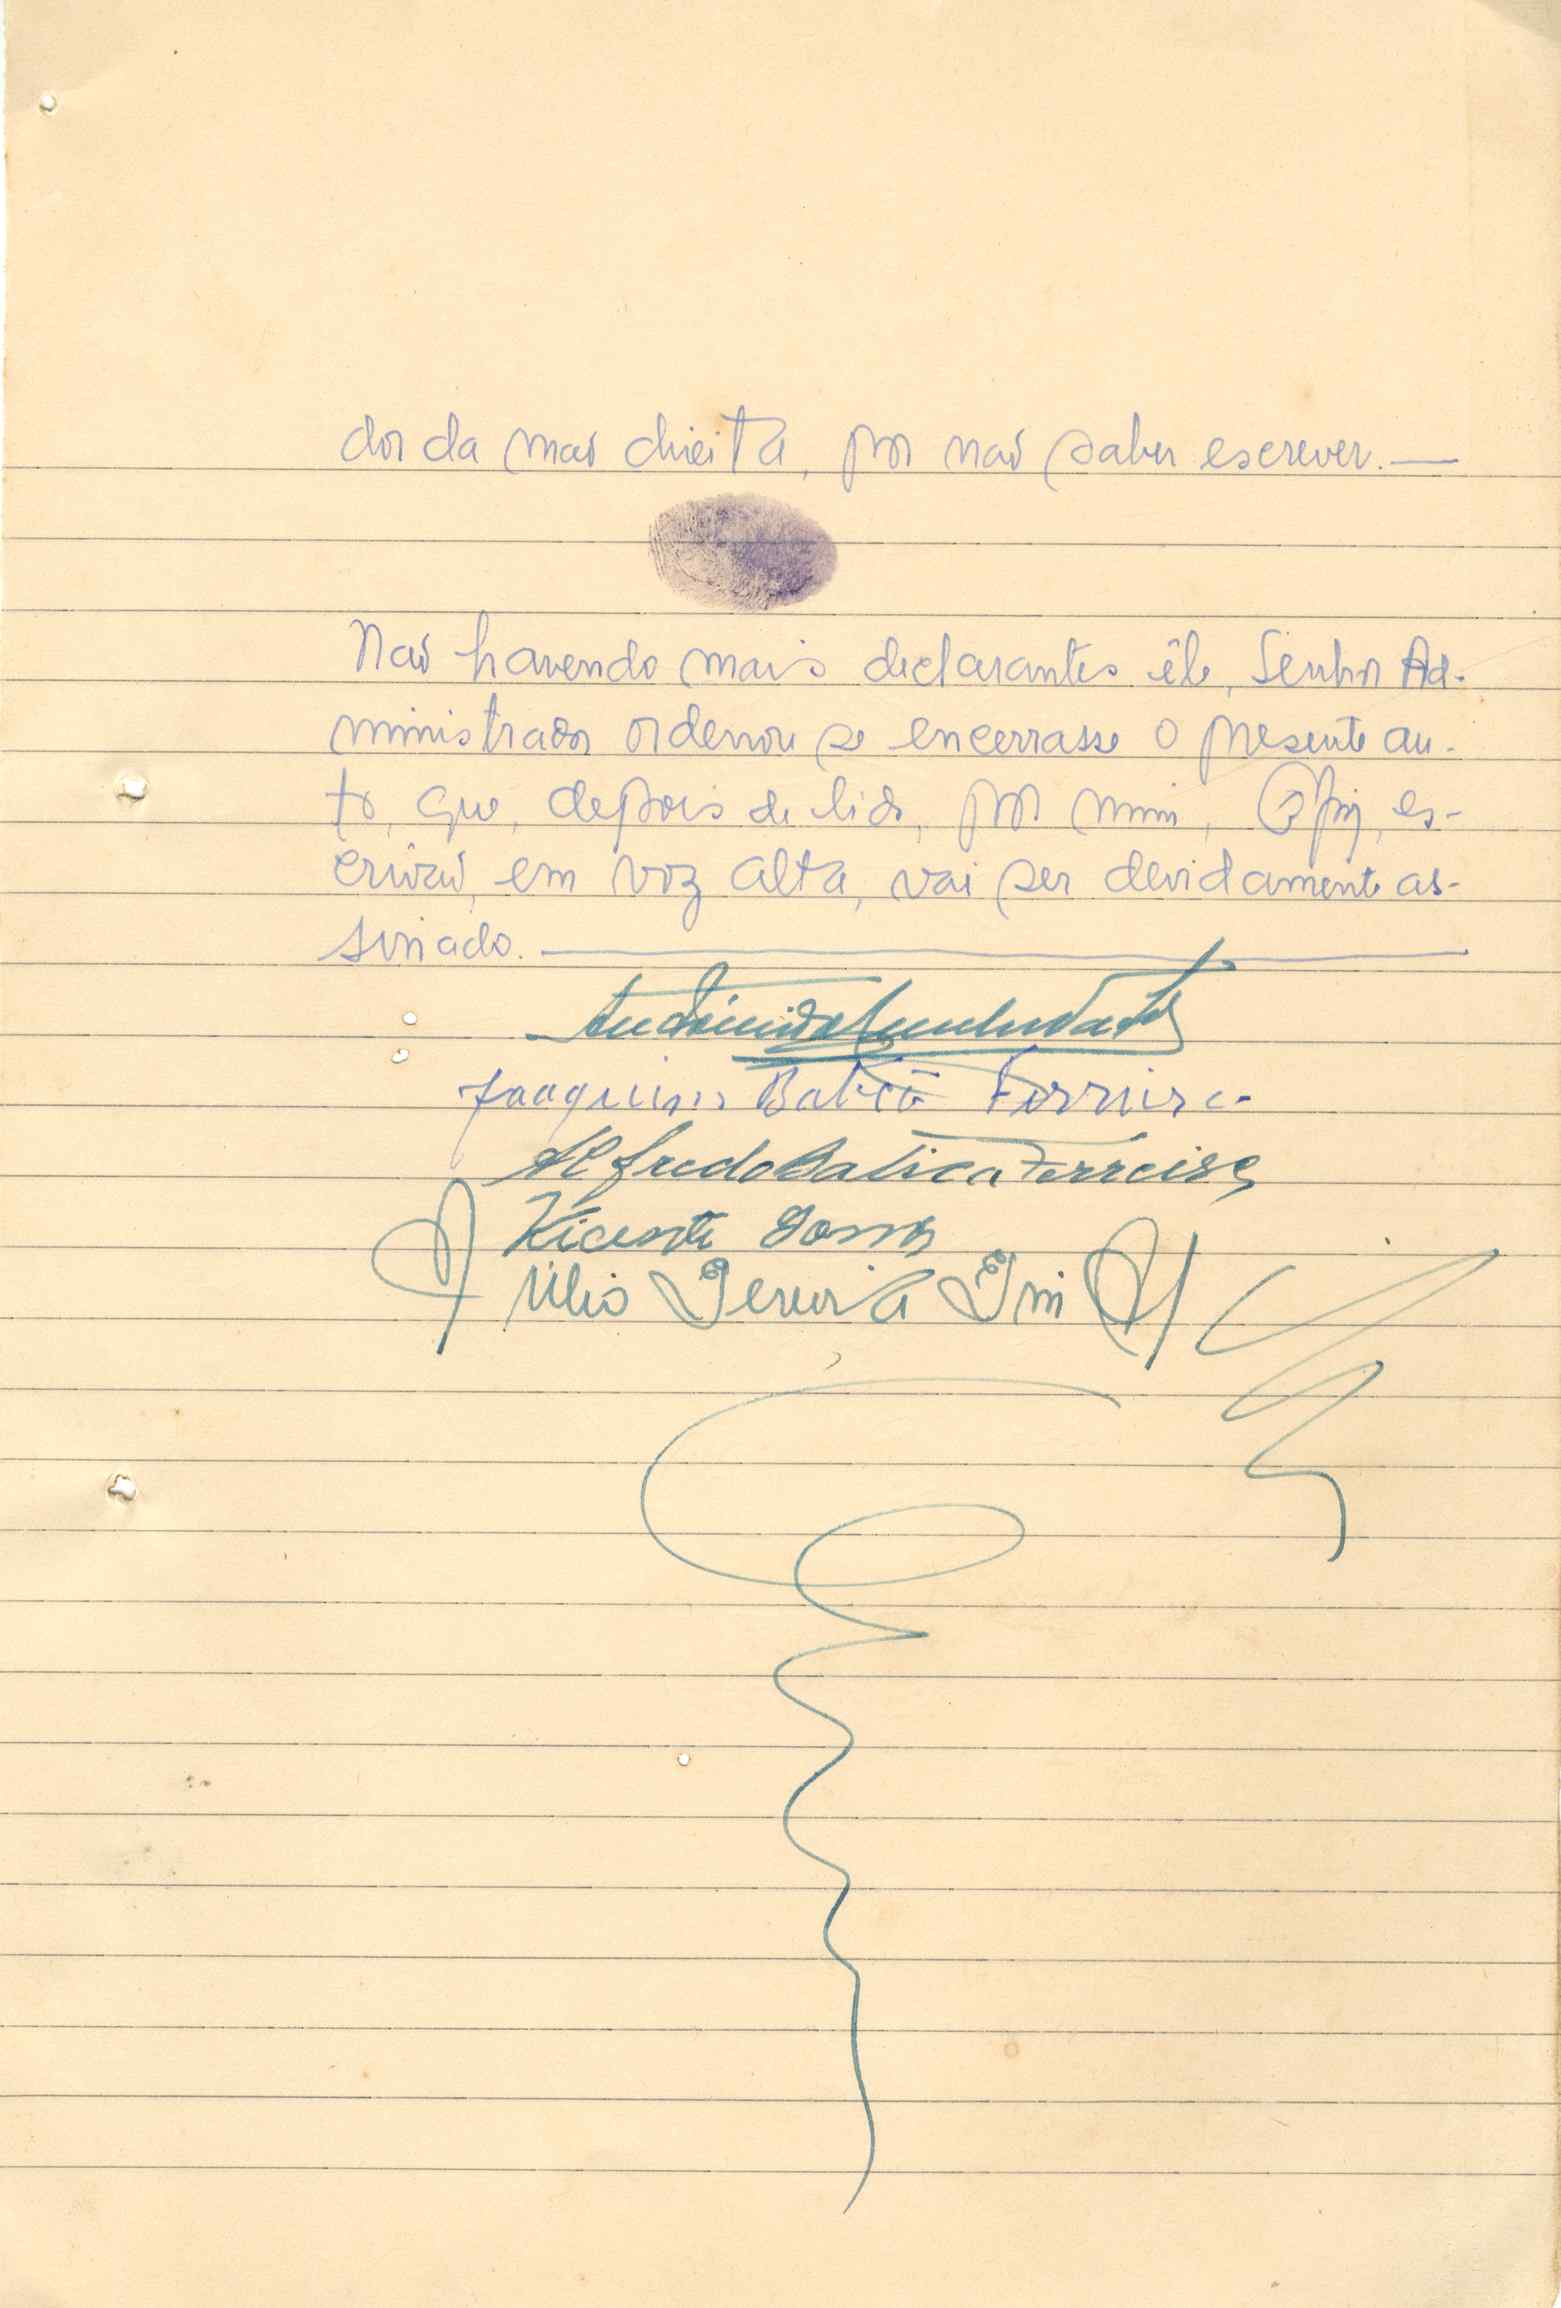 dor da mão direita, por não saber escrever. —
Não havendo mais declarantes êle, Senhor Ad-
ministrador ordenou se encerrasse o presente au-
to, que, depois de lido, por mim, es-
crivão, em voz alta, vai ser devidamente as-
sinado.
Joaquim Baticã Ferreira
Alfredo Baticã Ferreira
Vicente Gomes
Júlio Pereira